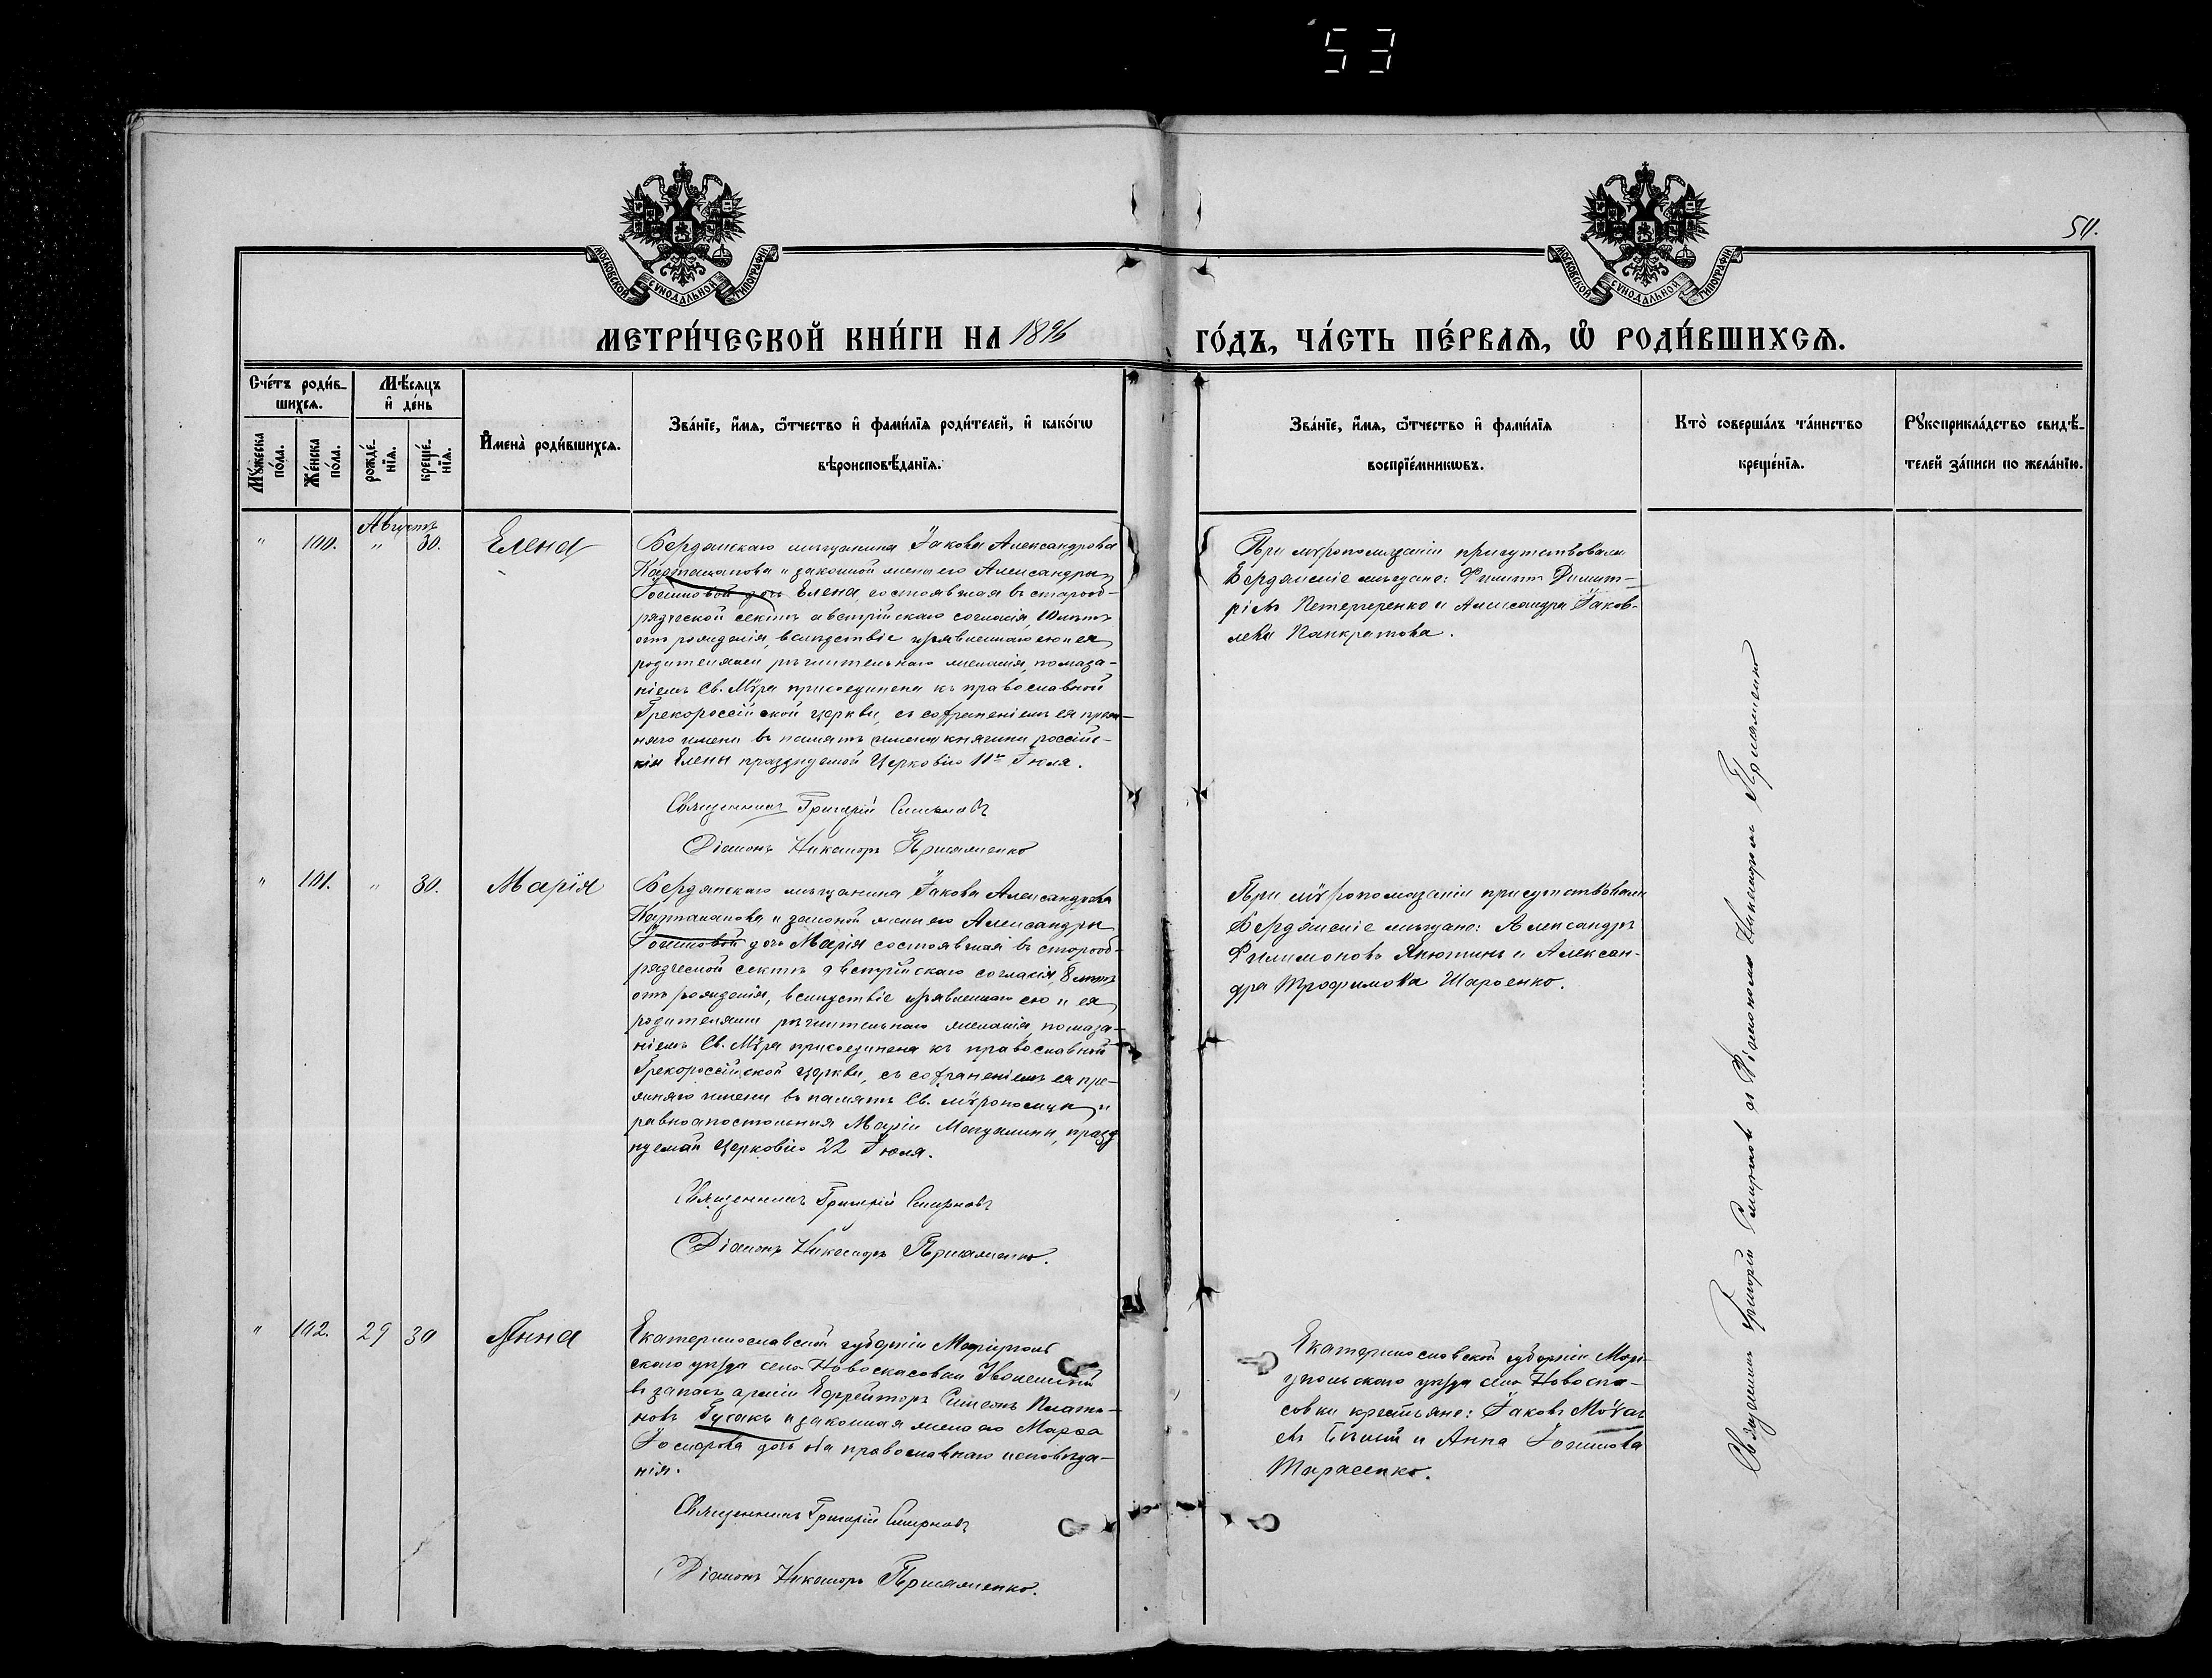 53
МОСКОВСКОЙ СУНОДАЛЬНОЙ ТИПОГРАФІИ
МОСКОВСКОЙ СУНОДАЛЬНОЙ ТИПОГРАФІИ
МЕТРИ́ЧЕСКОЙ КНИ́ГИ НА 1896
ГО́ДЪ, ЧА́СТЬ ПЕ́РВАѦ, Ѿ РОДИ́ВШИХСѦ.
Сче́тъ роди́в-
шихсѧ.
Мꙋ́жеска
по́ла.
Же́нска
по́ла.
Мѣ́сѧцъ
и҆ де́нь
рожде́-
нїѧ.
креще́-
нїѧ.
И҆мена̀ роди́вшихсѧ.
Зва́нїе, и҆́мѧ, ѻ҆́тчество и҆ фами́лїѧ роди́телей, и҆ како́гѡ
вѣроисповѣ́данїѧ.
Зва́нїе, и҆́мѧ, ѻ҆́тчество и҆ фами́лїѧ
воспрїе́мникѡвъ.
Кто̀ соверша́лъ та́инство
креще́нїѧ.
Рꙋкоприкла́дство свидѣ́-
телей за́писи по жела́нїю.
Августъ
" 100. " 30. Елена
Бердянскаго мѣщанина Іакова Александрова
и законной жены его Александры
дочь Елена, состоявшая въ старооб-
рядческой сектѣ австрійскаго согласія, 10 лѣтъ
отъ рожденія, вслѣдствіе изъявленнаго ею и ея
родителями рѣшительнаго желанія, помаза-
ніемъ Св. Мѵра присоединена къ православной
Грекороссійской церкви, съ сохраненіемъ ея преж-
няго имени въ память имени княгини россійс-
кія Елены празднуемой Церковію 11го Іюля.
Священникъ Григорій Смирновъ
Діаконъ Никаноръ
При мѵропомазаніи присутствовали
Бердянскіе мѣщане: Филиппъ Димит-
ріевъ и Александра Іаков-
лева Панкратова.
" 101. " 30. Марія
Бердянскаго мѣщанина Іакова Александрова
и законной жены его Александры
дочь Марія состоявшая въ старооб-
рядческой сектѣ австрійскаго согласія, 8 лѣтъ
отъ рожденія, вслѣдствіе изъявленнаго ею и ея
родителями рѣшительнаго желанія, помаза-
ніемъ Св. Мѵра присоединена къ православной
Грекороссійской церкви, съ сохраненіемъ ея пре-
жняго имени въ память Св. мѵроносицы и
равноапостольныя Маріи Магдалины, празд
нуемой Церковію 22 Іюля.
Священникъ Григорій Смирновъ
Діаконъ Никаноръ
При мѵропомазаніи присутствовали
Бердянскіе мѣщане: Александръ
Филимоновъ и Алексан-
дра Трофимова
" 102. 29 30 Анна
Екатеринославской губерніи Маріуполь
скаго уѣзда села Новоспасовки
въ запасъ арміи Ефрейторъ Симеонъ Плато-
новъ Гусакъ и законная жена его Марѳа
дочь оба православнаго исповѣда-
нія.
Священникъ Григорій Смирновъ
Діаконъ Никаноръ
Екатеринославской губерніи Марі-
упольскаго уѣзда села Новоспа-
совки крестьяне: Іаковъ
и Анна
Тарасенко.
Священникъ Григорій Смирновъ и Діаконъ Никаноръ